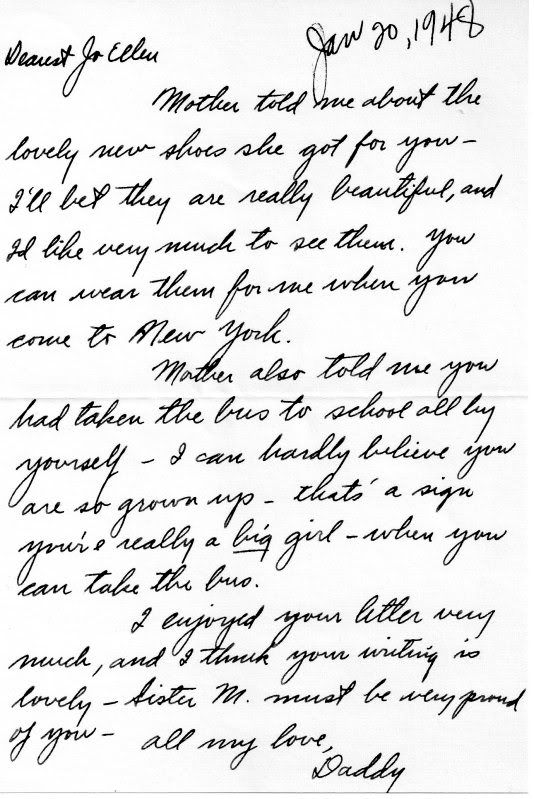 Jan 20, 1948
Dearest Jo Ellen
Mother told me about the
lovely new shoes she got for you –
I'll bet they are really beautiful, and
I'd like very much to see them. You
can wear them for me when you
come to New York.
Mother also told me you
had taken the bus to school all by
yourself – I can hardly believe you
are so grown up – thats' a sign
you'r e really a big girl – when you
can take the bus.
I enjoyed your letter very
much, and I think your writing is
lovely – Sister M. must be very proud
of you –
all my love,
Daddy